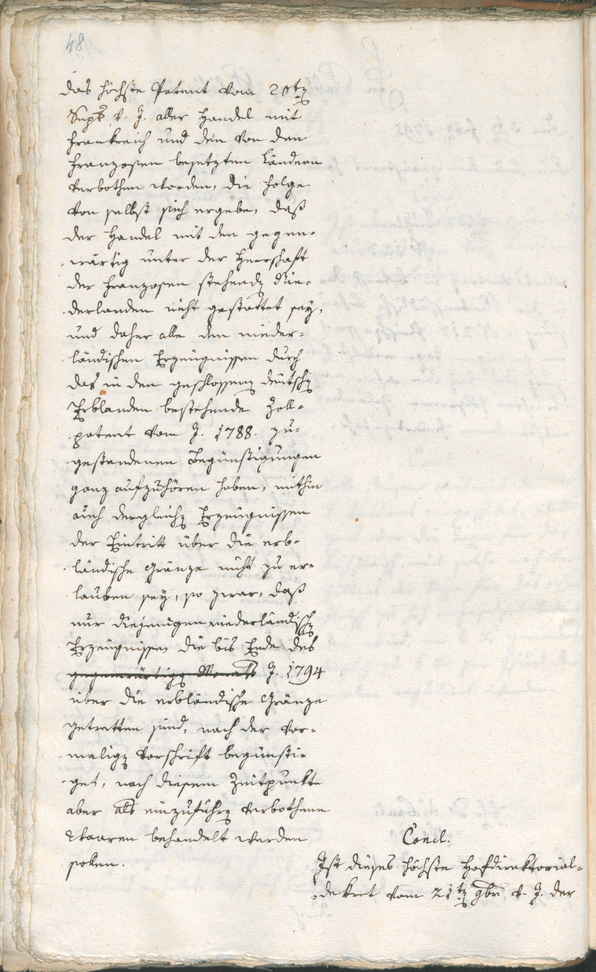 48
das höchste Patent vom 20ten
Sept. v. J. aller Handel mit
Frankreich und den von den
Franzosen besetzten Ländern
verbothen worden, die Folge
von selbst sich ergebe, daß
der Handel mit den gegen-
wärtig unter der Herrschaft
der Franzosen stehenden Nie-
derlanden nicht gestattet sey,
und daher alle den nieder-
ländischen Erzeugnissen durch
das in den geschlossenen deutschen
Erblanden bestehende Zoll-
patent vom J. 1788. zu-
gestandenen Begünstigungen
ganz aufzuhören haben, mithin
auch dergleichen Erzeugnissen
der Eintritt über die erb-
ländische Gränze nicht zu er-
lauben sey, so zwar, daß
nur diejenigen niederländischen
Erzeugnissen die bis Ende des
gegenwärtigen Monats J. 1794
über die erbländische Gränze
getretten sind, nach der vor-
maligen Vorschrift begünsti-
get, nach diesem Zeitpunkte
aber als einzuführen verbothene
Waaren behandelt werden
sollen.
Concl.
Ist dieses höchste Hofdirektorial-
dekret vom 21ten 9br. v. J. der